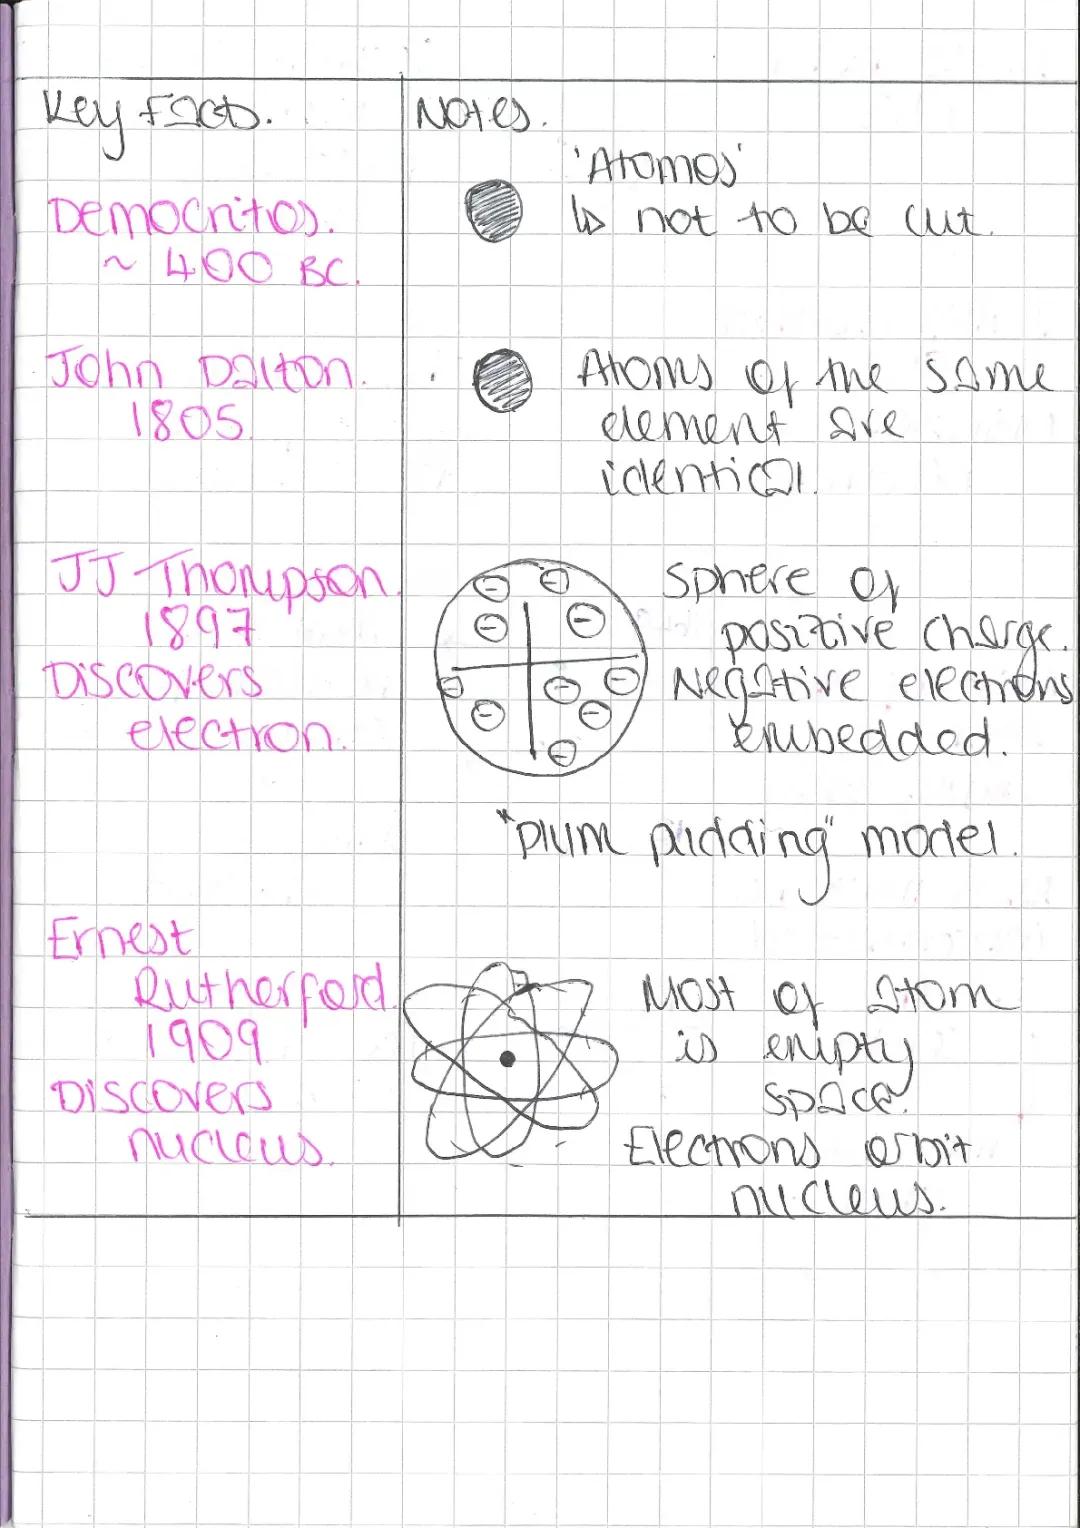 Key Facts.
Notes.
Democritos.
~ 400 BC.
'Atomos'
↳ not to be cut.
John Dalton.
1805.
Atoms of the same
element are
identical.
JJ Thompson.
1897
Discovers
electron.
Sphere of
positive charge.
Negative electrons
embedded.
"plum pudding" model.
Ernest
Rutherford.
1909
Discovers
nucleus.
Most of atom
is empty
space.
Electrons orbit
nucleus.